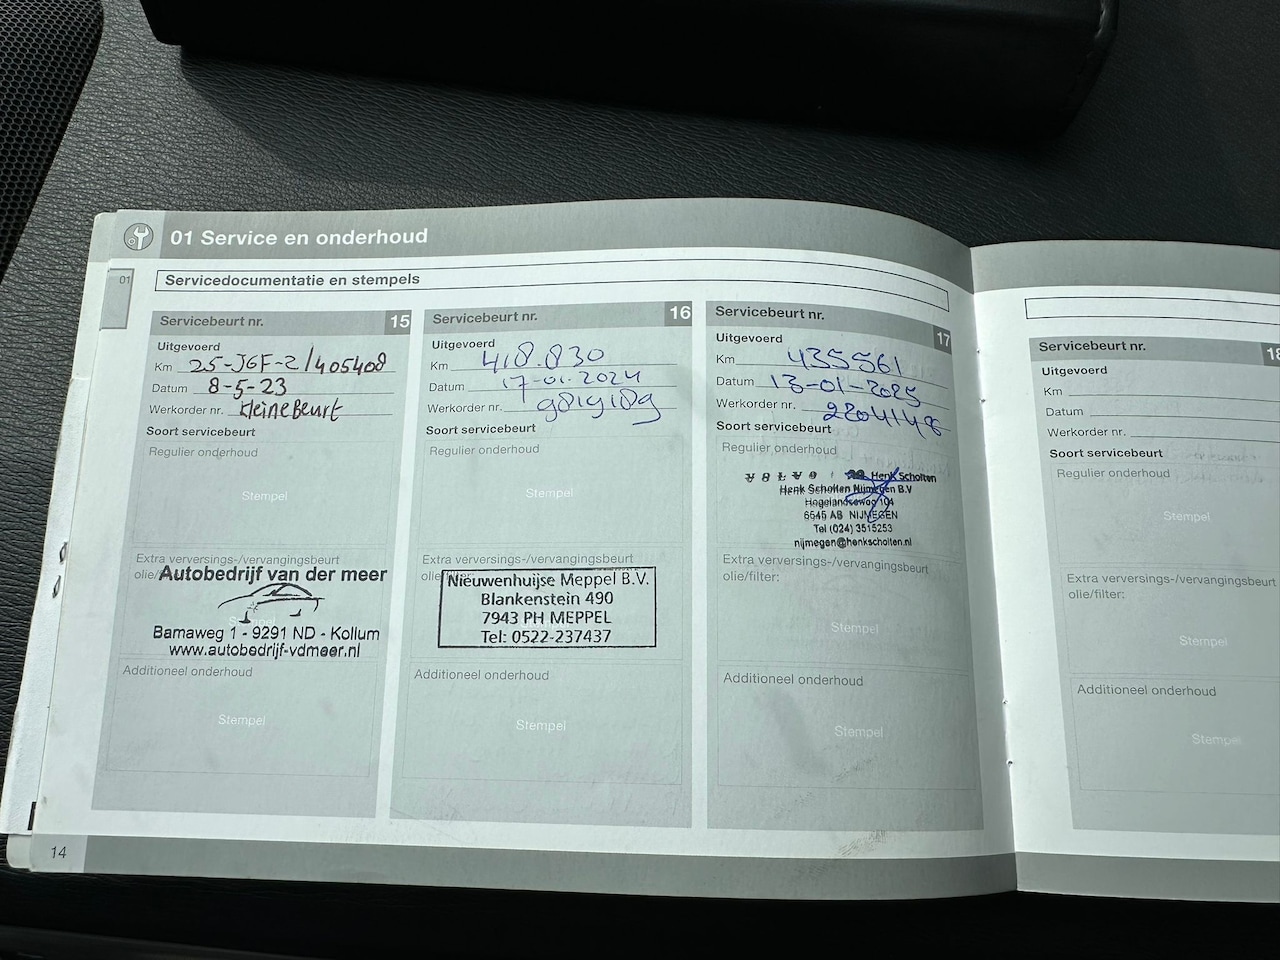 01 Service en onderhoud
01
Servicedocumentatie en stempels
Servicebeurt nr. 15
Uitgevoerd
Km 25-JGF-2/405408
Datum 8-5-23
Werkorder nr. kleine Beurt
Soort servicebeurt
Regulier onderhoud
Stempel
Extra verversings-/vervangingsbeurt
olie/
Autobedrijf van der meer
Bamaweg 1 - 9291 ND - Kollum
www.autobedrijf-vdmeer.nl
Additioneel onderhoud
Stempel
Servicebeurt nr. 16
Uitgevoerd
Km 418.830
Datum 17-01-2024
Werkorder nr.
Soort servicebeurt
Regulier onderhoud
Stempel
Extra verversings-/vervangingsbeurt
olie/
Nieuwenhuijse Meppel B.V.
Blankenstein 490
7943 PH MEPPEL
Tel: 0522-237437
Additioneel onderhoud
Stempel
Servicebeurt nr. 17
Uitgevoerd
Km 435561
Datum 13-01-2025
Werkorder nr. 2204148
Soort servicebeurt
Regulier onderhoud
Henk Scholten
Henk Scholten Nijmegen B.V
Hogelandseweg 104
6545 AB NIJMEGEN
Tel (024) 3515253
nijmegen@henkscholten.nl
Extra verversings-/vervangingsbeurt
olie/filter:
Stempel
Additioneel onderhoud
Stempel
14
Servicebeurt nr. 18
Uitgevoerd
Km
Datum
Werkorder nr.
Soort servicebeurt
Regulier onderhoud
Stempel
Extra verversings-/vervangingsbeurt
olie/filter:
Stempel
Additioneel onderhoud
Stempel